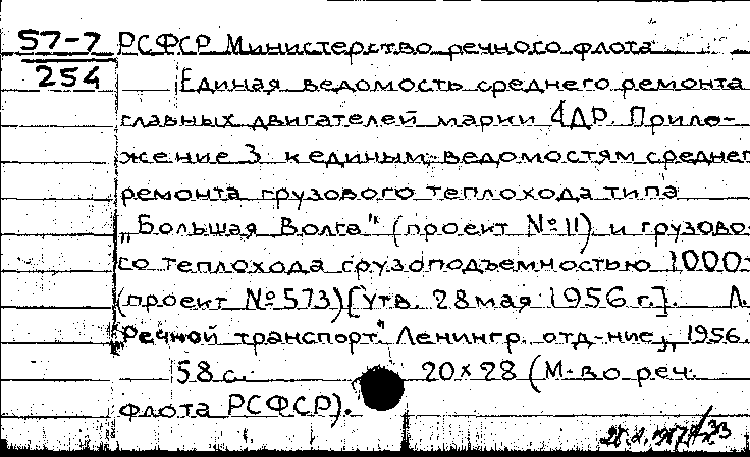 57-7 РСФСР Министерство речного флота
254 Единая ведомость среднего ремонта
главных двигателей марки 4ДР. Прило-
жение 3 к единым ведомостям среднег
ремонта грузового теплохода типа
„Большая Волга" (проект № 11) и грузово-
го теплохода грузоподъемностью 1000
(проект № 573) [Утв. 28 мая 1956 г.]. Л.
"Речной транспорт". Ленингр. отд-ние, 1956.
58 с. 20×28 (М-во реч.
флота РСФСР).